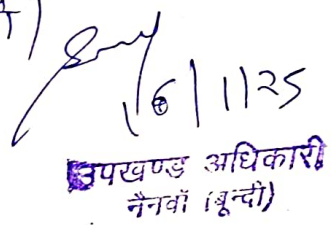 16/1/25
उपखण्ड अधिकारी
नैनवाँ (बून्दी)